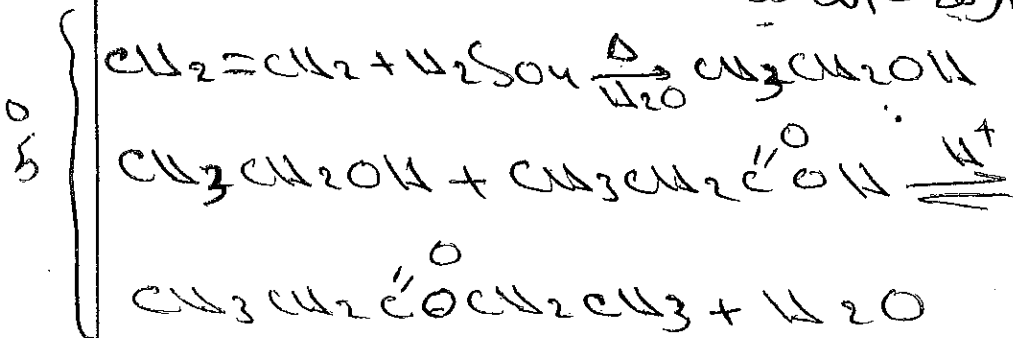 CH2=CH2 + H2SO4 Δ→ H2O CH3CH2OH
5
CH3CH2OH + CH3CH2C(=O)OH H+ ⇌
CH3CH2C(=O)OCH2CH3 + H2O